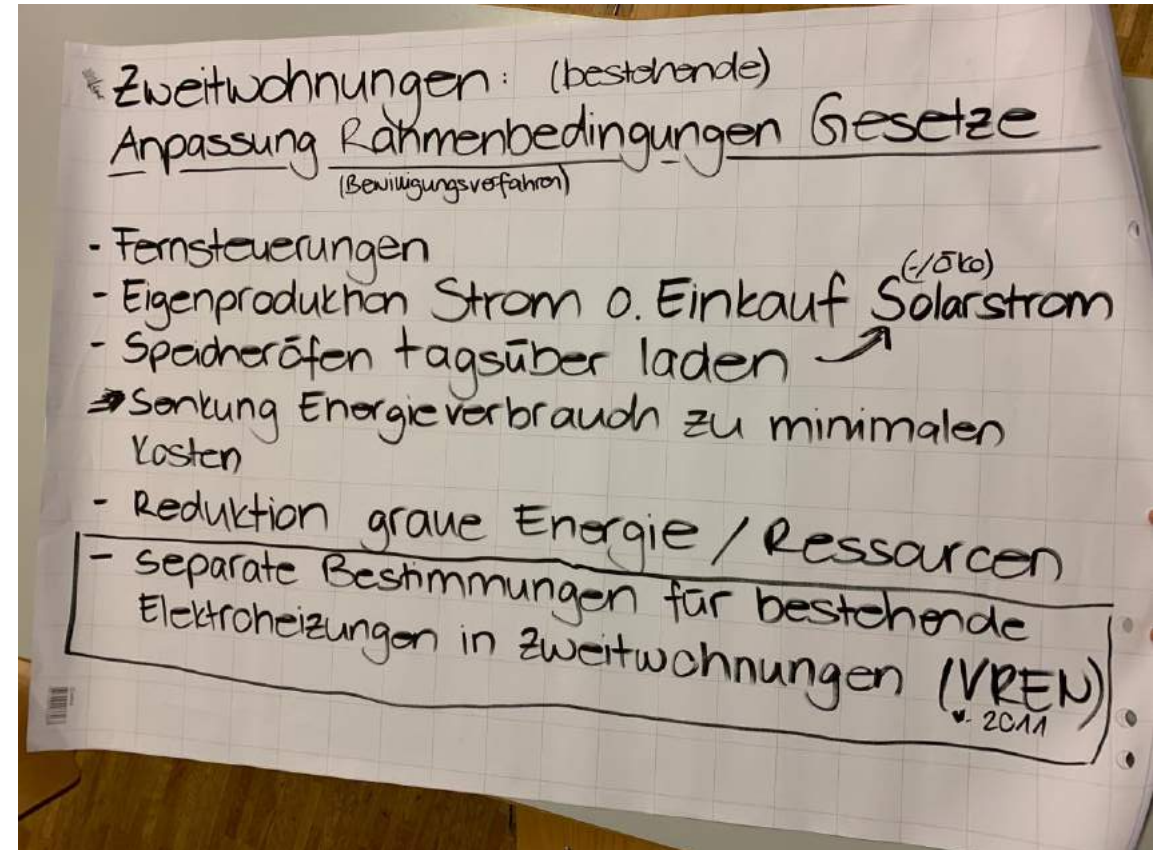 Zweitwohnungen: (bestehende)
Anpassung Rahmenbedingungen Gesetze
(Bewilligungsverfahren)
- Fernsteuerungen
(-/Öko)
- Eigenproduktion Strom o. Einkauf Solarstrom
- Speicheröfen tagsüber laden
Senkung Energieverbrauch zu minimalen
Kosten
- Reduktion graue Energie / Ressourcen
- separate Bestimmungen für bestehende
Elektroheizungen in Zweitwohnungen (VREN)
v. 2011